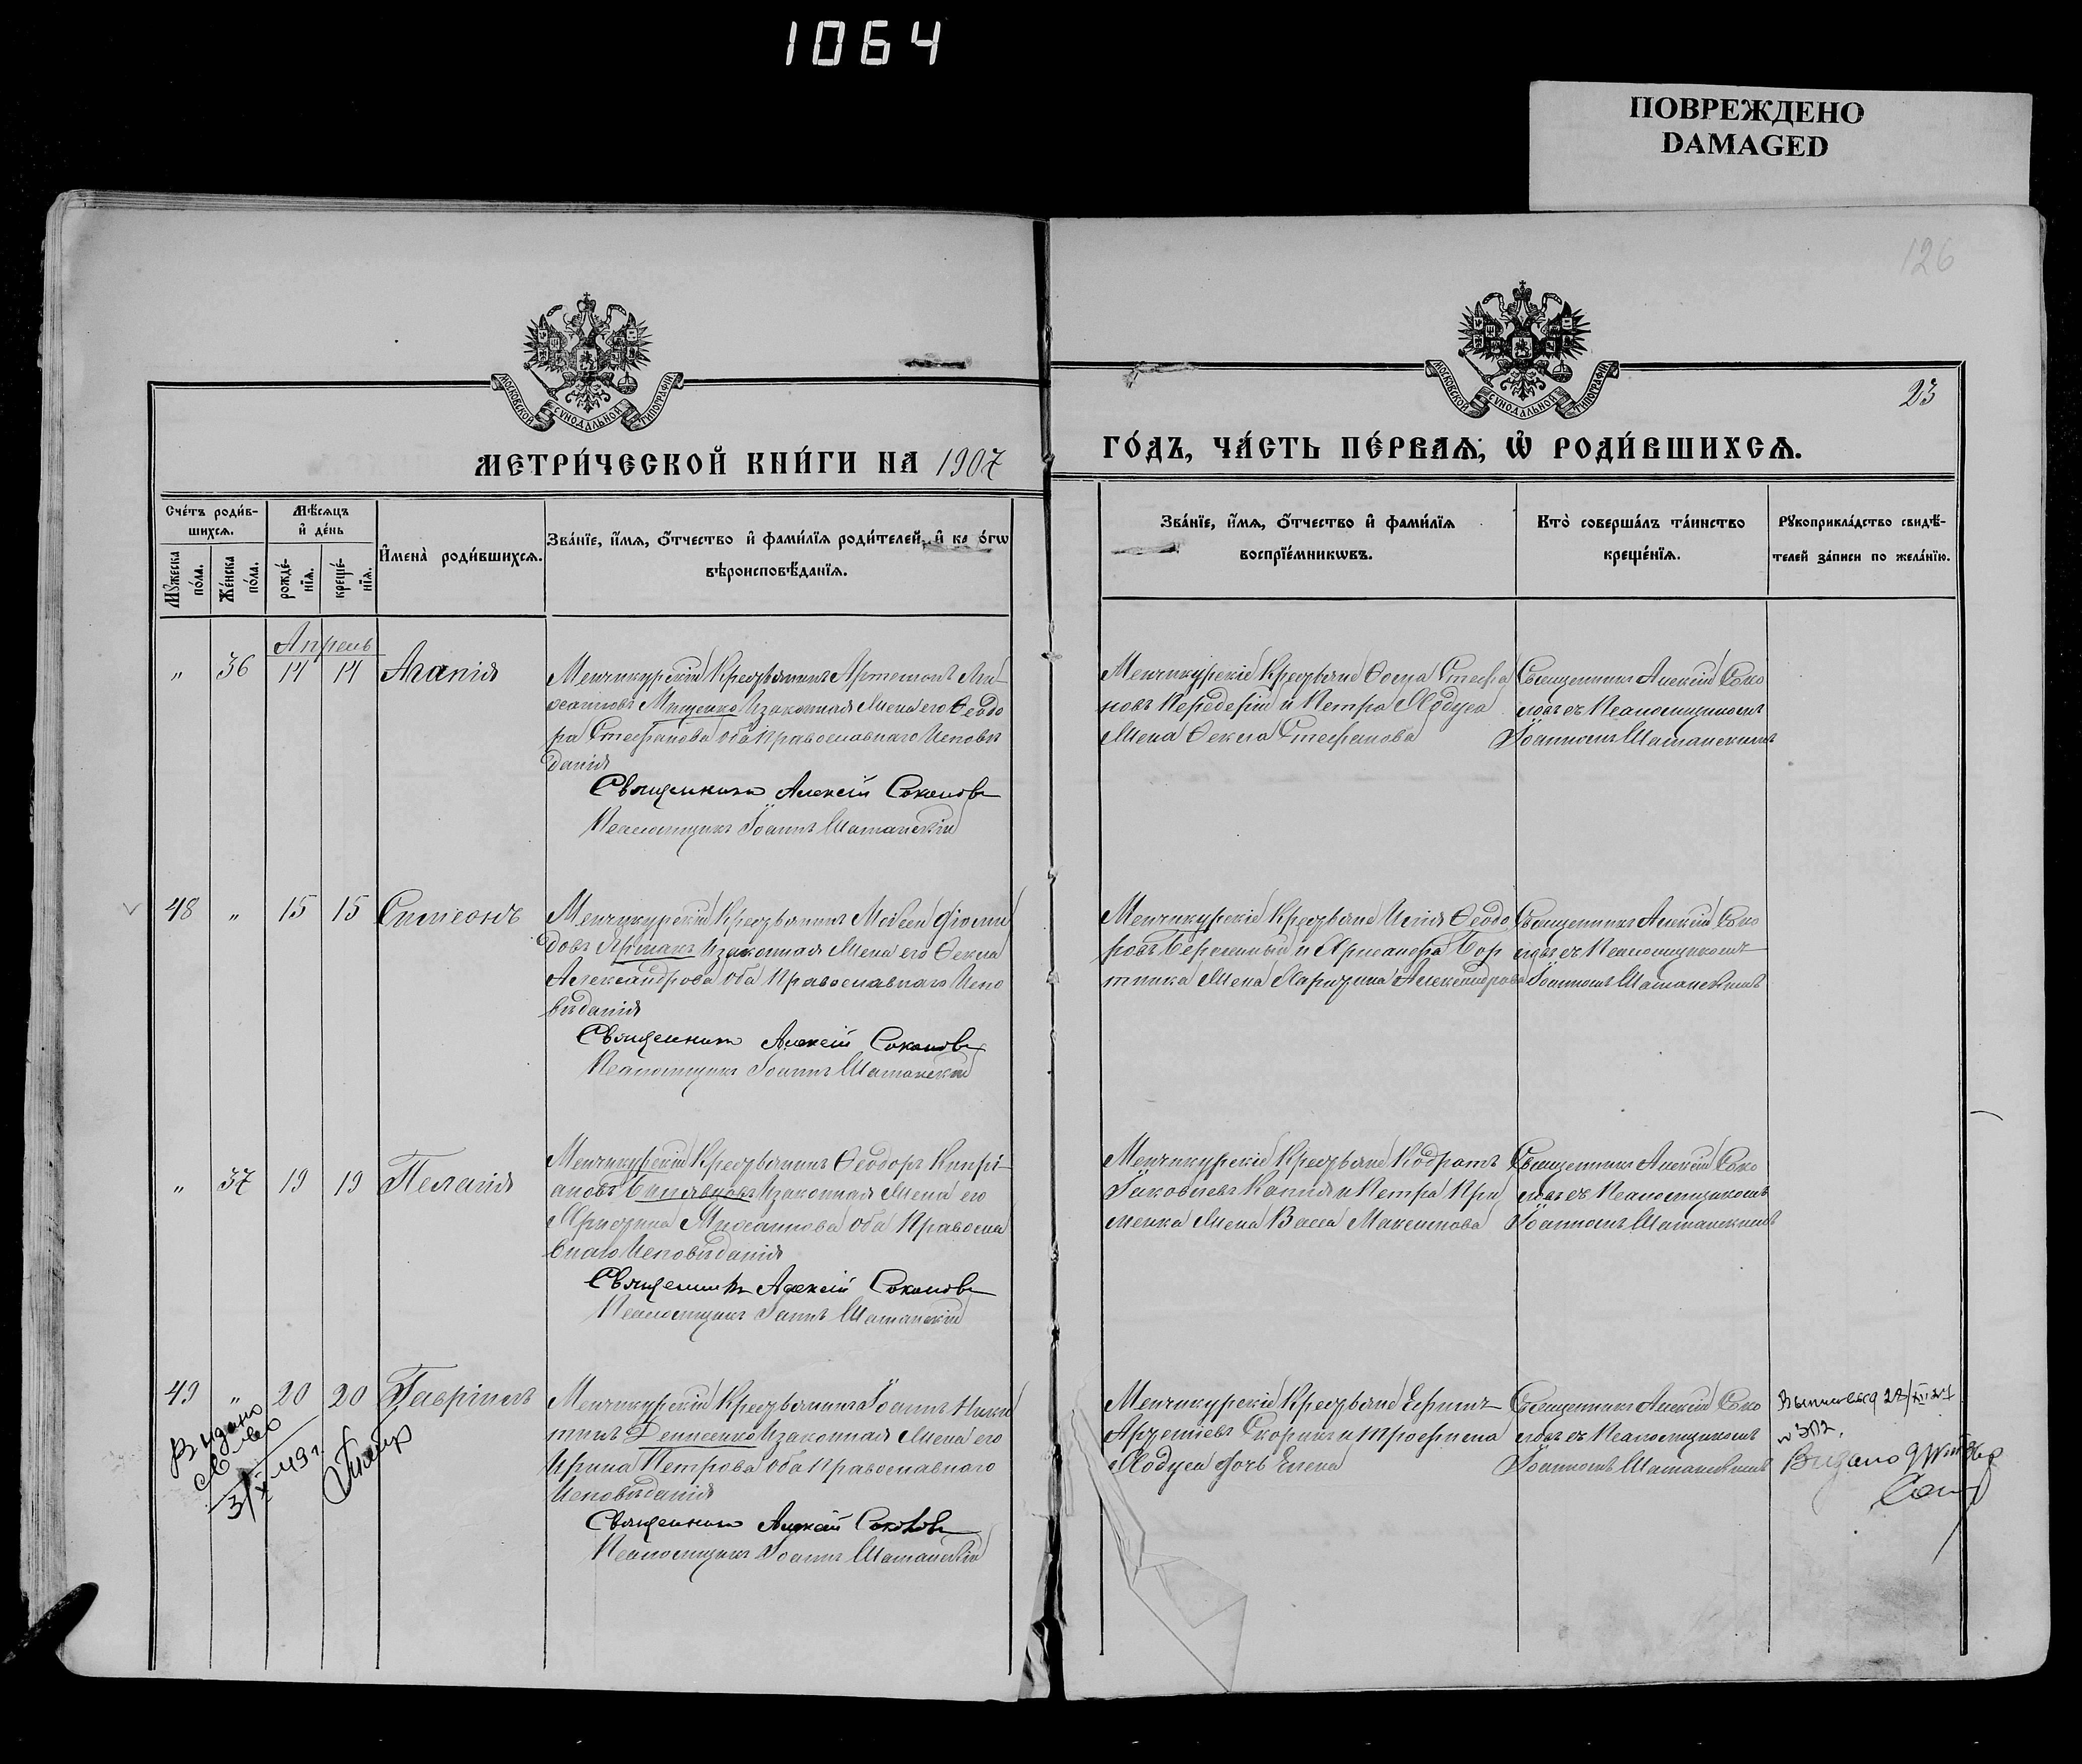 1064
ПОВРЕЖДЕНО
DAMAGED
126
23
МОСКОВСКОЙ СѴНОДАЛЬНОЙ ТИПОГРАФІИ
МОСКОВСКОЙ СѴНОДАЛЬНОЙ ТИПОГРАФІИ
МЕТРИ́ЧЕСКОЙ КНИ́ГИ НА 1907
ГО́ДЪ, ЧА́СТЬ ПЕ́РВАѦ, Ѽ РОДИ́ВШИХСѦ.
Сче́тъ роди́в-
шихсѧ.
Мꙋ́жеска по́ла.
Же́нска по́ла.
Мѣ́сѧцъ
и҆ де́нь
рожде́-
нїѧ.
креще́-
нїѧ.
И҆мена̀ роди́вшихсѧ.
Зва́нїе, и҆́мѧ, ѻ҆́тчество и҆ фами́лїѧ роди́телей, и҆ ко́гѡ
вѣроисповѣ́данїѧ.
Зва́нїе, и҆́мѧ, ѻ҆́тчество и҆ фами́лїѧ
воспрїе́мникѡвъ.
Кто̀ соверша́лъ та́инство
креще́нїѧ.
Рꙋкоприкла́дство свидѣ́-
телей за́писи по жела́нїю.
Апрель
" 36 14 14 Агапія
Менчикурскій Крестьянинъ Артемонъ
Мищенко и законная жена его Ѳеодо
ра Стефанова оба Православнаго Исповѣ
данія
Священникъ Алексій Соколовъ
Псаломщикъ Іоаннъ Шатанскій
Менчикурскіе Крестьяне Ѳома Стефа
новъ Передерій и Петра Лодуса
жена Ѳекла Стефанова
Священникъ Алексій Соко
ловъ съ Псаломщикомъ
Іоанномъ Шатанскимъ
48 " 15 15 Симеонъ
Менчикурскій Крестьянинъ Моѵсей Фіоми
довъ и законная жена его Ѳекла
Александрова оба Православнаго Испо
вѣданія
Священникъ Алексій Соколовъ
Псаломщикъ Іоаннъ Шатанскій
Менчикурскіе Крестьяне Илія Ѳеодо
ровъ Бережный и Бор
тника жена Харитина Александрова
Священникъ Алексій Соко
ловъ съ Псаломщикомъ
Іоанномъ Шатанскимъ
" 37 19 19 Пелагія
Менчикурскій Крестьянинъ Ѳеодоръ Кипрі-
ановъ и законная жена его
Христина Михаилова оба Правосла
внаго Исповѣданія
Священникъ Алексій Соколовъ
Псаломщикъ Іоаннъ Шатанскій
Менчикурскіе Крестьяне Кодратъ
Іаковлевъ и Петра При
жена Васса Максимова
Священникъ Алексій Соко
ловъ съ Псаломщикомъ
Іоанномъ Шатанскимъ
49 " 20 20 Гавріилъ
Менчикурскій Крестьянинъ Іоаннъ Ники
тинъ Денисенко и законная жена его
Ирина Петрова оба Православнаго
Исповѣданія
Священникъ Алексій Соколовъ
Псаломщикъ Іоаннъ Шатанскій
Менчикурскіе Крестьяне Ефимъ
Арсеніевъ Скорикъ и Трофима
Лодуса дочь Елена
Священникъ Алексій Соко
ловъ съ Псаломщикомъ
Іоанномъ Шатанскимъ
Видано
св-во
3/X 49 г.
Видано